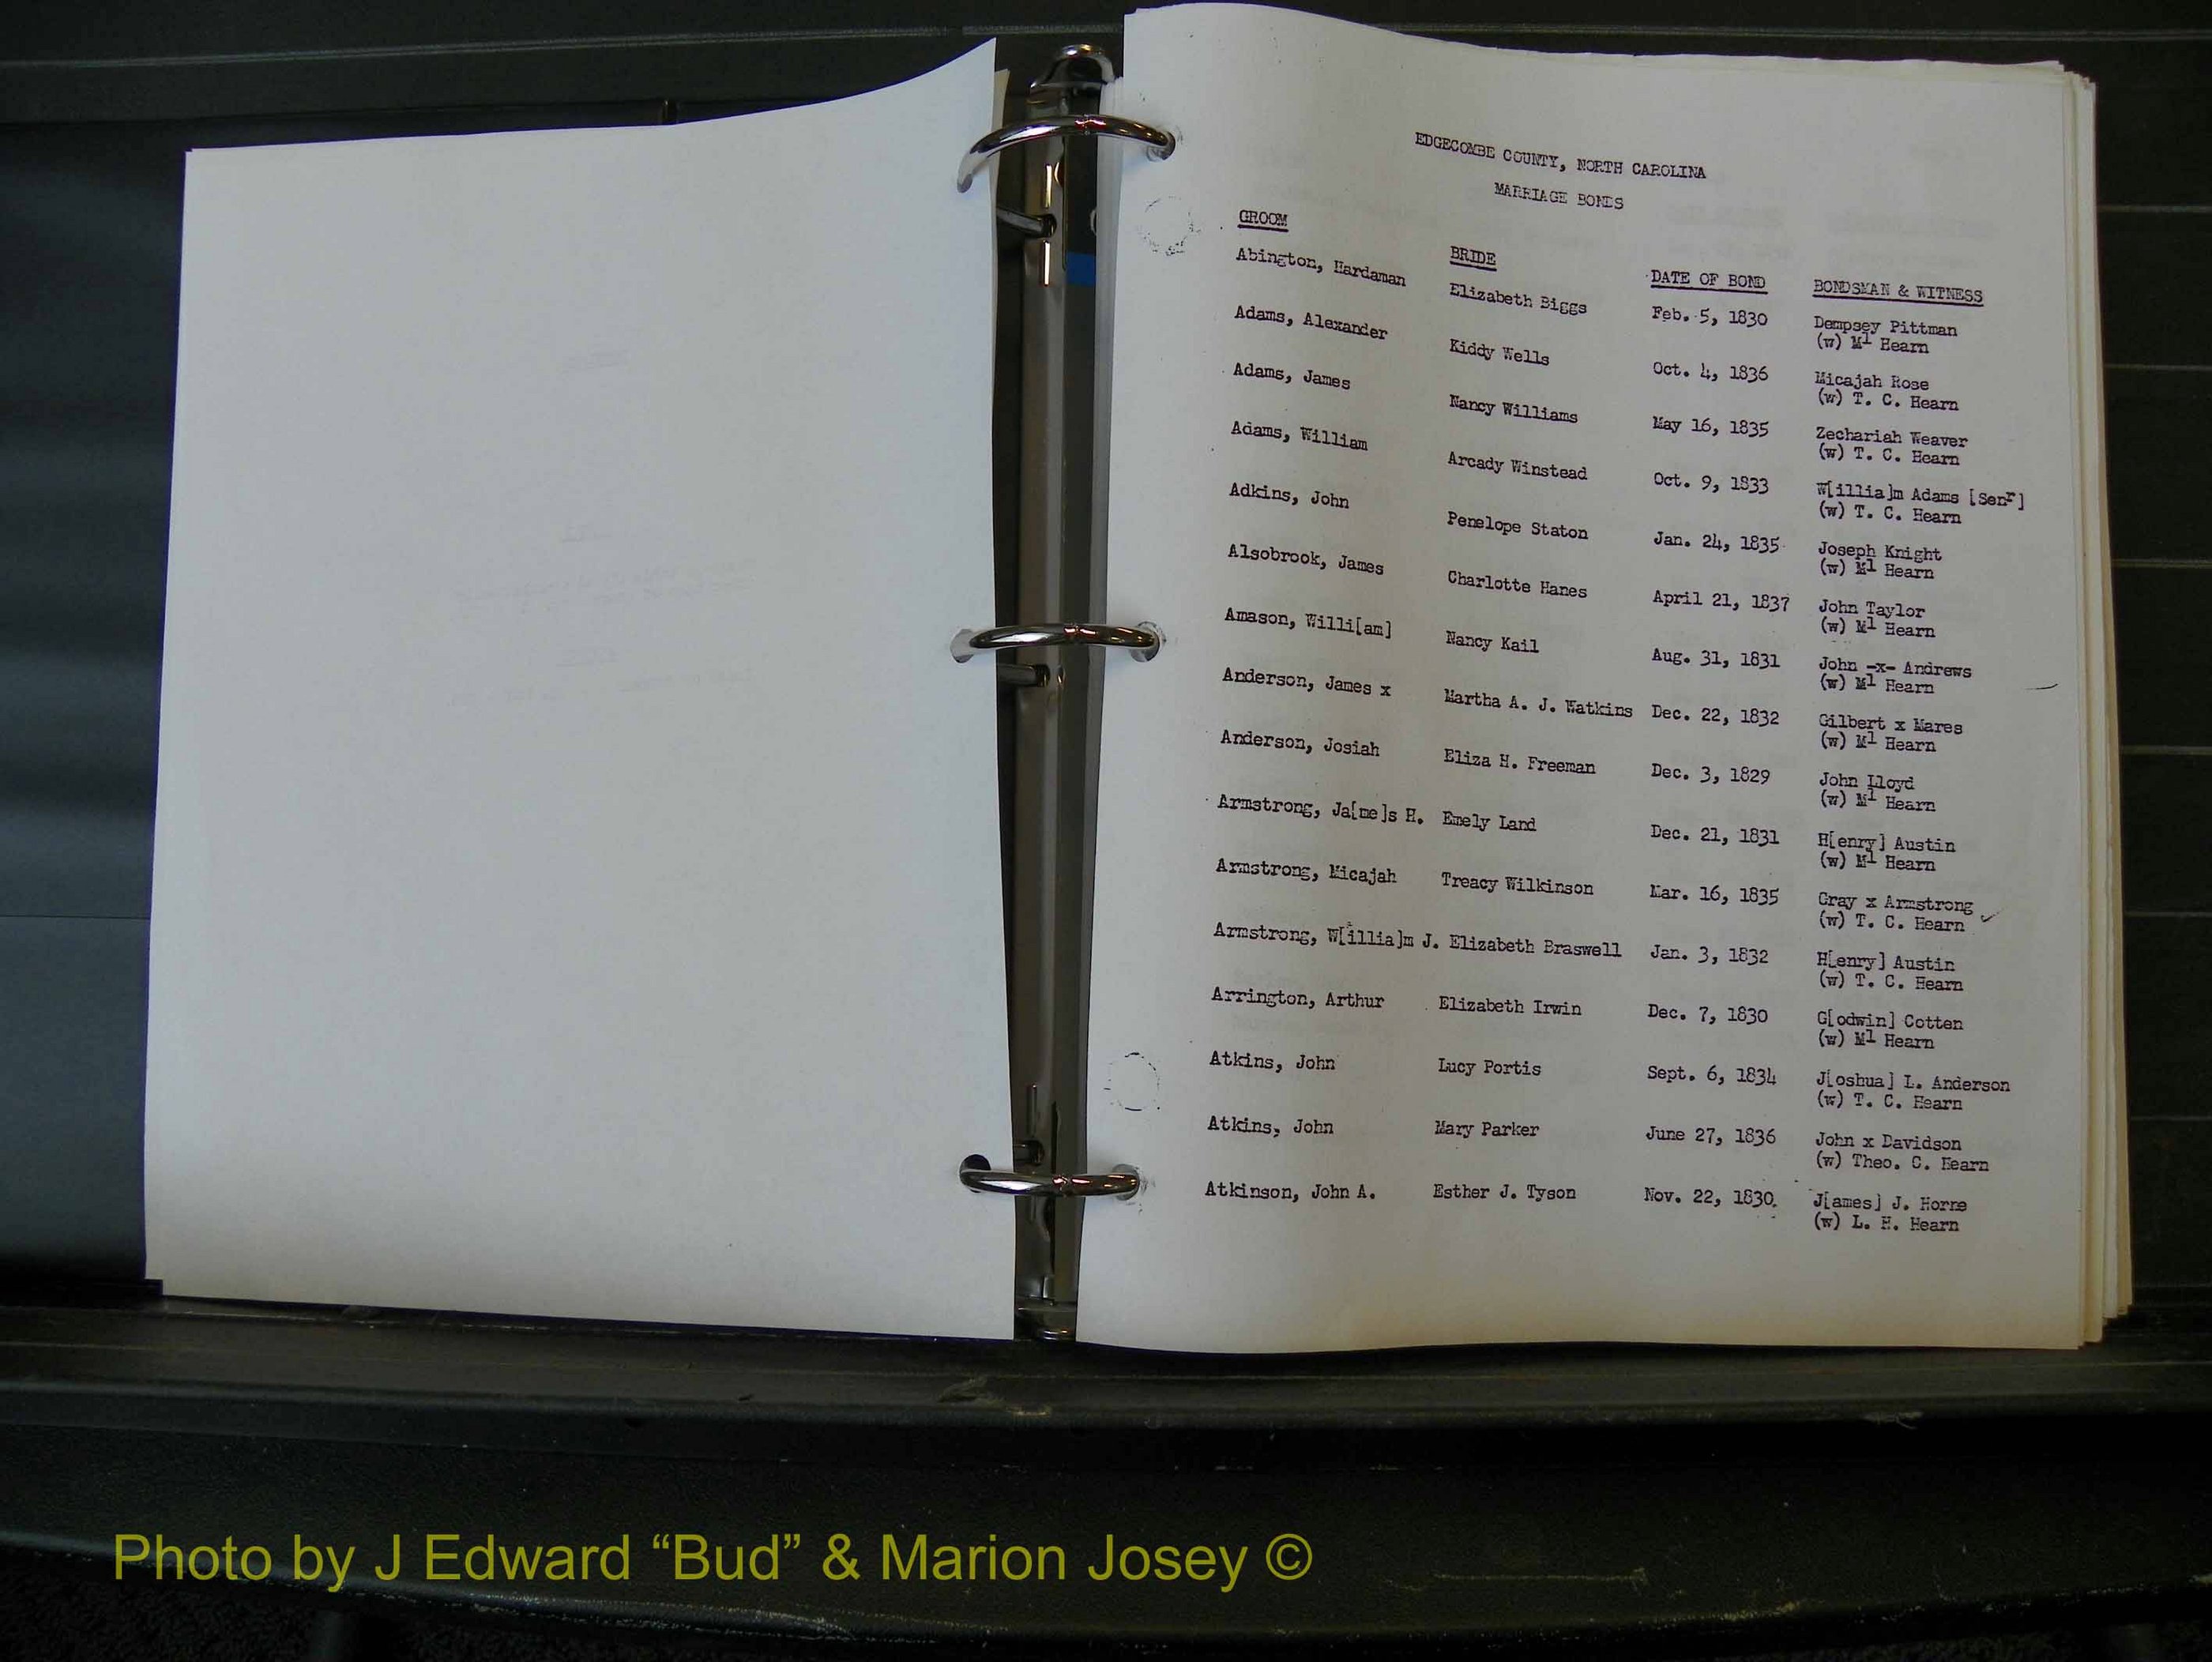 EDGECOMBE COUNTY, NORTH CAROLINA
MARRIAGE BONDS
GROOM BRIDE DATE OF BOND BONDSMAN & WITNESS
Abington, Hardaman Elizabeth Biggs Feb. 5, 1830 Dempsey Pittman
(w) Ml Hearn
Adams, Alexander Kiddy Wells Oct. 4, 1836 Micajah Rose
(w) T. C. Hearn
Adams, James Nancy Williams May 16, 1835 Zechariah Weaver
(w) T. C. Hearn
Adams, William Arcady Winstead Oct. 9, 1833 W[illia]m Adams [Senr]
(w) T. C. Hearn
Adkins, John Penelope Staton Jan. 24, 1835 Joseph Knight
(w) Ml Hearn
Alsobrook, James Charlotte Hanes April 21, 1837 John Taylor
(w) Ml Hearn
Amason, Willi[am] Nancy Kail Aug. 31, 1831 John -x- Andrews
(w) Ml Hearn
Anderson, James x Martha A. J. Watkins Dec. 22, 1832 Gilbert x Mares
(w) Ml Hearn
Anderson, Josiah Eliza H. Freeman Dec. 3, 1829 John Lloyd
(w) Ml Hearn
Armstrong, Ja[me]s H. Emely Land Dec. 21, 1831 H[enry] Austin
(w) Ml Hearn
Armstrong, Micajah Treacy Wilkinson Mar. 16, 1835 Gray x Armstrong
(w) T. C. Hearn
Armstrong, W[illia]m J. Elizabeth Braswell Jan. 3, 1832 H[enry] Austin
(w) T. C. Hearn
Arrington, Arthur Elizabeth Irwin Dec. 7, 1830 G[odwin] Cotten
(w) Ml Hearn
Atkins, John Lucy Portis Sept. 6, 1834 J[oshua] L. Anderson
(w) T. C. Hearn
Atkins, John Mary Parker June 27, 1836 John x Davidson
(w) Theo. C. Hearn
Atkinson, John A. Esther J. Tyson Nov. 22, 1830. J[ames] J. Horne
(w) L. H. Hearn
Photo by J Edward “Bud” & Marion Josey ©